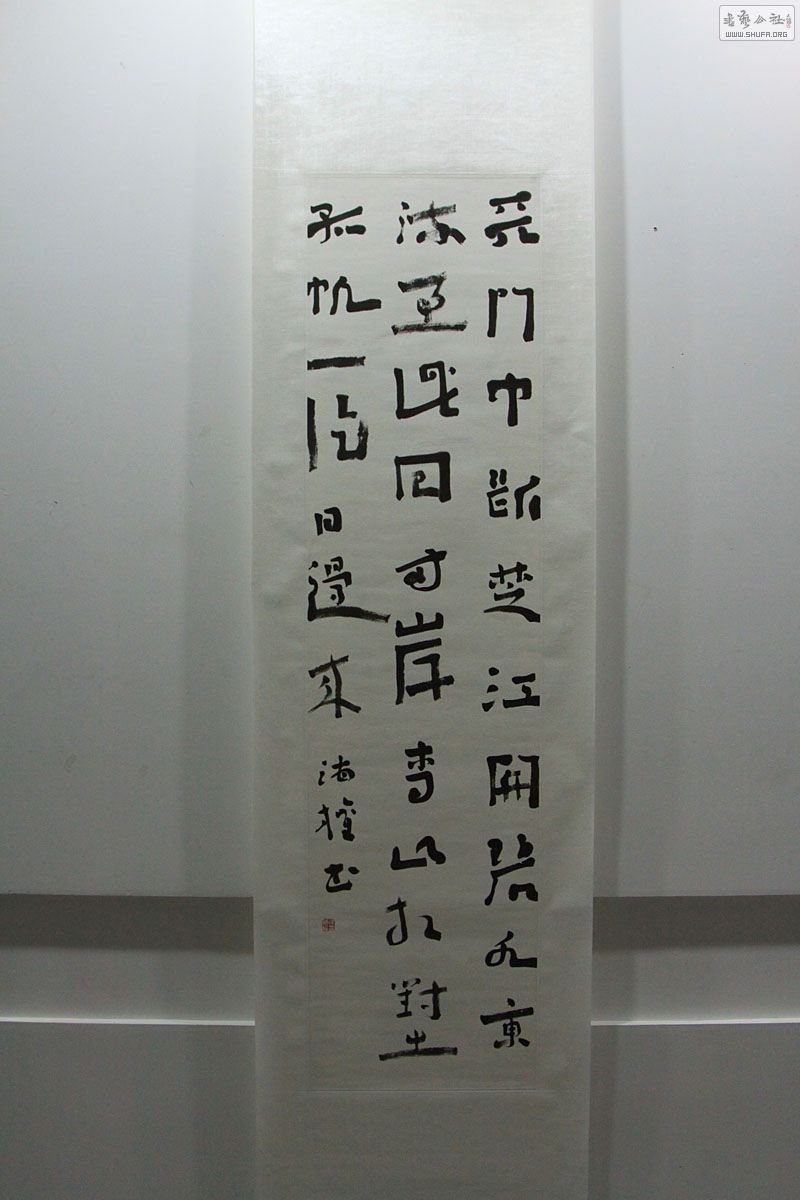 天門中斷楚江開碧水東
流至此回兩岸青山相對出
孤帆一片日邊來
海 书
书艺公社
WWW.SHUFA.ORG